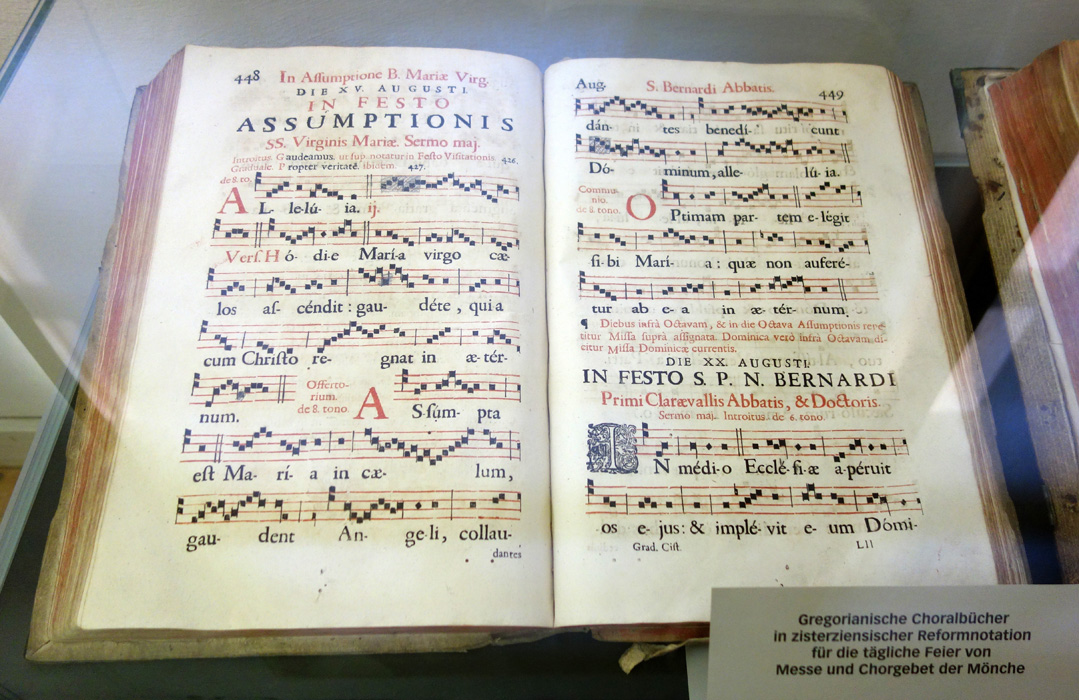 448 In Assumptione B. Mariæ Virg.
DIE XV. AUGUSTI.
IN FESTO
ASSUMPTIONIS
SS. Virginis Mariæ. Sermo maj.
Introitus. Gaudeamus. ut sup. notatur in Festo Visitationis. 426.
Graduale. Propter veritatē. ibidem. 427.
de 8. to.
AL- le-lú- ia. ij.
Vers. Hó- di-e Marí-a virgo cæ-
los as- céndit : gau- déte , qui a
cum Christo re- gnat in æ-tér-
num.
Offerto-
rium.
de 8. tono.
ASsúm- pta
est Ma- rí- a in cæ- lum,
gau- dent An- ge-li, collau-
dantes
Aug. S. Bernardi Abbatis. 449
dán- tes benedí- cunt
Dó- minum, alle- lú- ia.
Commu-
nio.
de 8. tono.
OPtimam par- tem e-légit
si-bi Marí- a : quæ non auferé-
tur ab e-a in æ- tér- num.
¶ Diebus infrà Octavam, & in die Octava Assumptionis repe-
titur Missa suprà assignata. Dominica verò infrà Octavam di-
citur Missa Dominicæ currentis.
DIE XX. AUGUSTI.
IN FESTO S. P. N. BERNARDI
Primi Claræ vallis Abbatis, & Doctoris.
Sermo maj. Introitus. de 6. tono.
IN médi-o Ecclé-si-æ a-péruit
os e- jus : & implé-vit e- um Dómi-
Grad. Cist. LII
Gregorianische Choralbücher
in zisterziensischer Reformnotation
für die tägliche Feier von
Messe und Chorgebet der Mönche